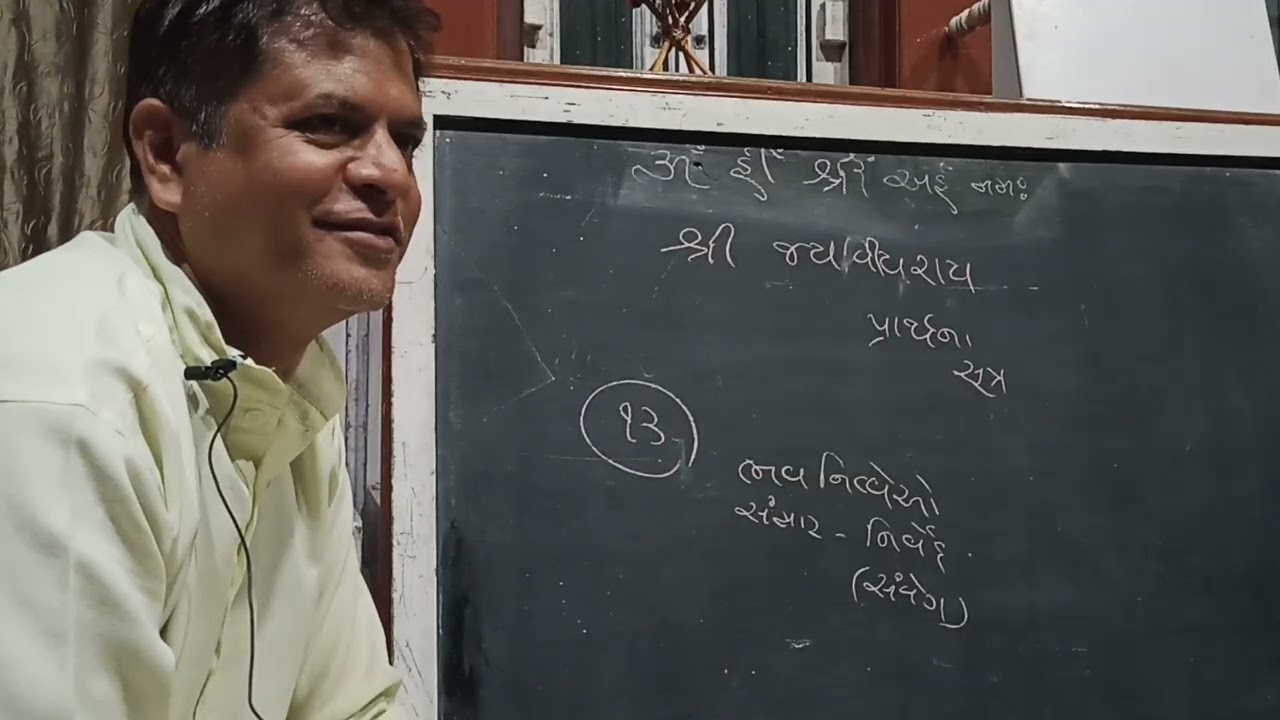 ૐ હ્રીઁ શ્રીઁ અર્હં નમઃ
શ્રી જયવીયરાય
પ્રાર્થના
સૂત્ર
૧૩
ભવ નિવ્વેઓ
સંસાર - નિર્વેદ
(સંવેગ)